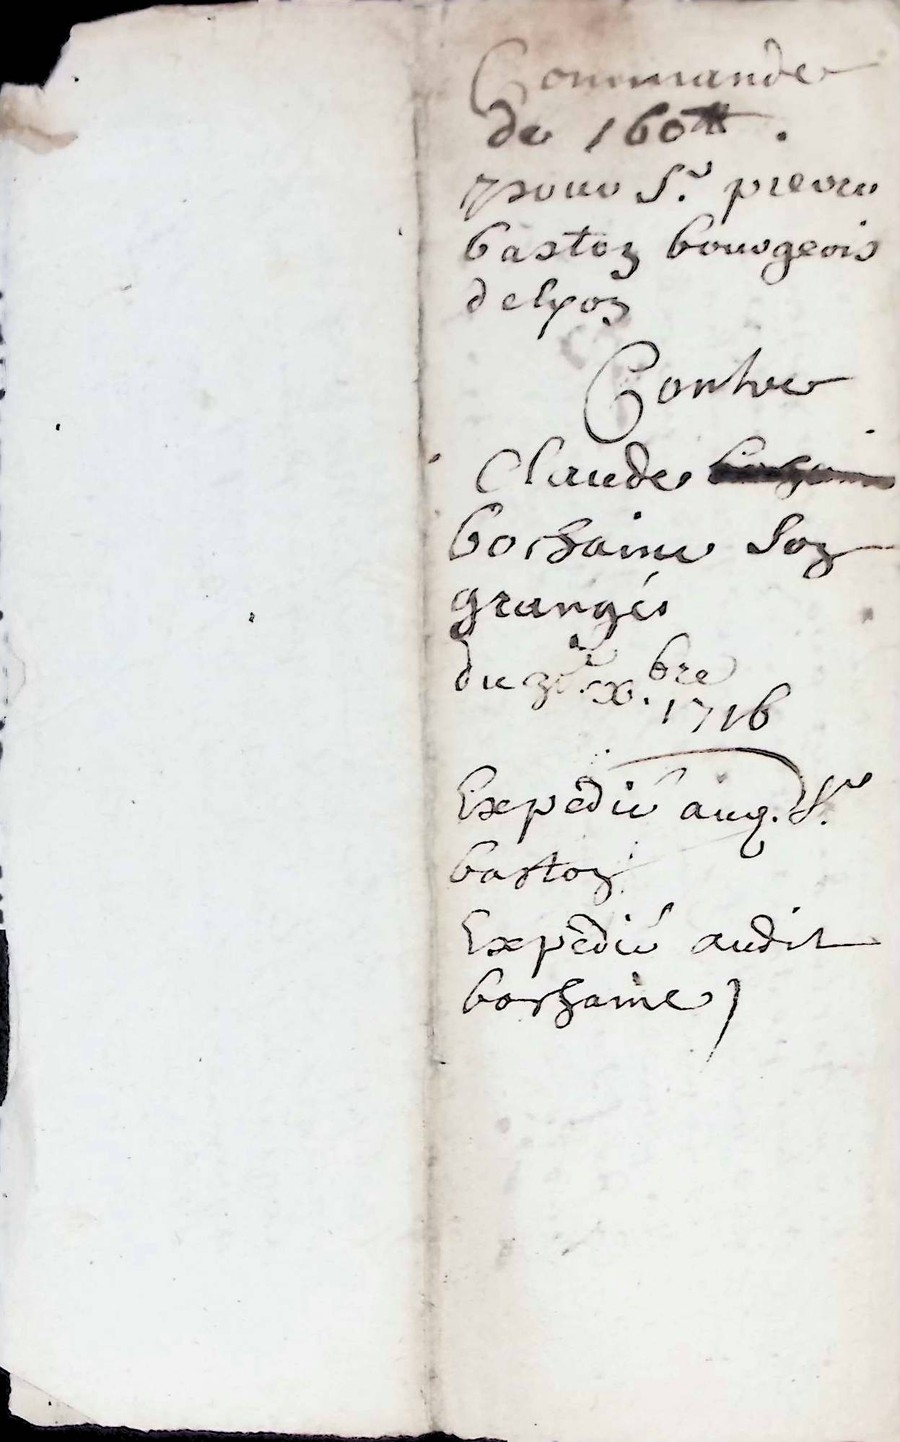 Commande
de 160tt.
pour Sr. pierre
baston bourgeois
delyon
Contre
Claude
bochaine son
granger
du xbre
1716
Expédié aud. Sr.
baston
Expédié audit
borhaine